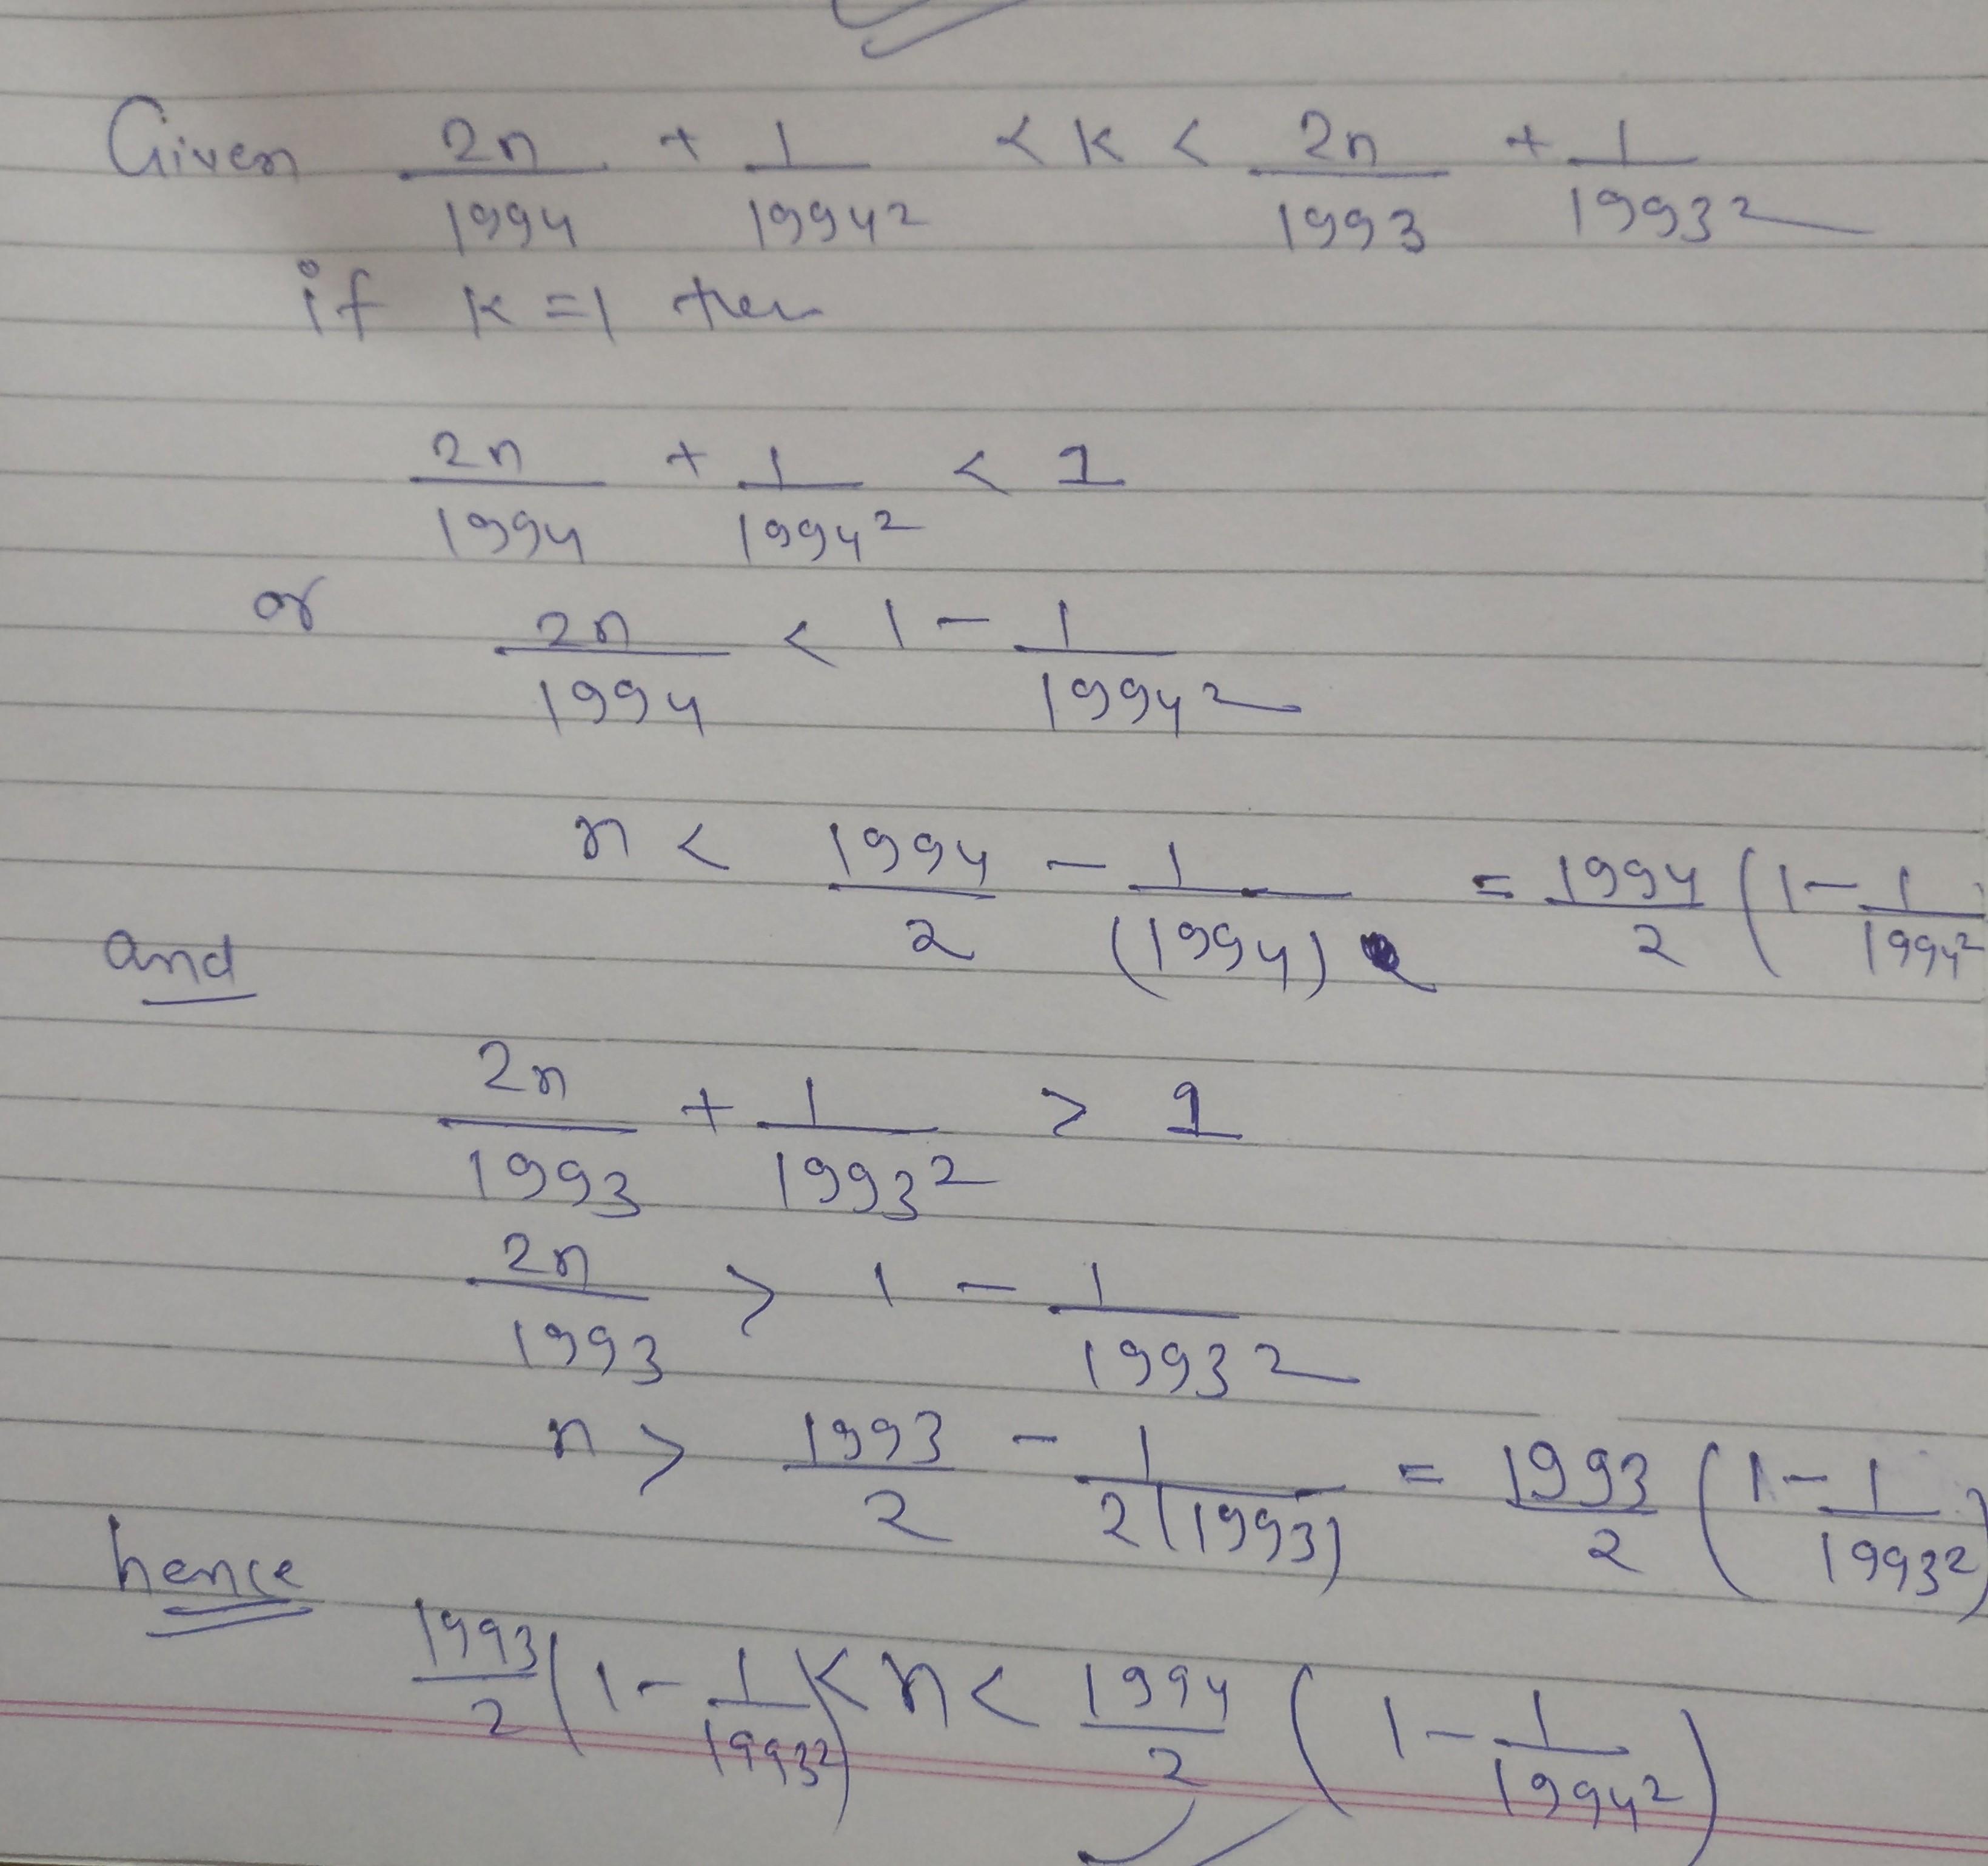 Given 2n/1994 + 1/1994² < K < 2n/1993 + 1/1993²
if K=1 then
2n/1994 + 1/1994² < 1
or 2n/1994 < 1 - 1/1994²
n < 1994/2 - 1/(1994)2 = 1994/2 (1 - 1/1994²
and
2n/1993 + 1/1993² > 1
2n/1993 > 1 - 1/1993²
n > 1993/2 - 1/2(1993) = 1993/2 (1 - 1/1993²)
hence
1993/2 (1 - 1/1993²) < n < 1994/2 (1 - 1/1994²)